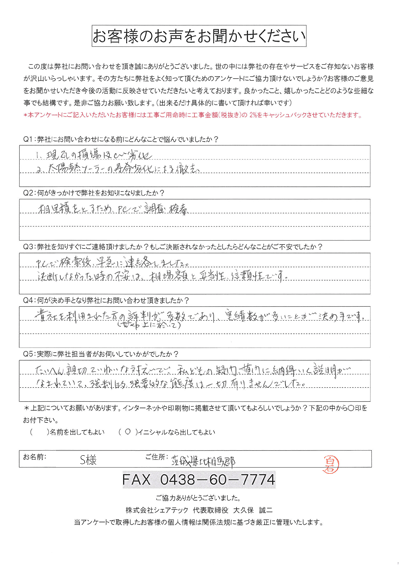 お客様のお声をお聞かせください
この度は弊社にお問い合わせを頂き誠にありがとうございました。世の中には弊社の存在やサービスをご存知ないお客様
が沢山いらっしゃいます。その方たちに弊社をよく知って頂くためのアンケートにご協力頂けないでしょうか?お客様のご意見
をお聞かせいただき今後の活動に反映させていきたいと考えております。良かったこと、嬉しかったことどのような些細な
事でも結構です。是非ご協力お願い致します。(出来るだけ具体的に書いて頂ければ幸いです)
*本アンケートにご記入いただいたお客様には工事ご用命時に工事金額(税抜き)の 2%をキャッシュバックさせていただきます。
Q1:弊社にお問い合わせになる前にどんなことで悩んでいましたか?
1、現瓦の
2、太陽熱ソーラーの寿命劣化による撤去。
Q2:何がきっかけで弊社をお知りになりましたか?
相見積をとるため、PCで調査検索
Q3:弊社を知りすぐにご連絡頂けましたか?もしご決断されなかったとしたらどんなことがご不安でしたか?
PCで検索後、早急に連絡しました。
決断しなかった時の不安は、相場額と妥当性、信頼性です。
Q4:何が決め手となり弊社にお問い合わせ頂きましたか?
貴社を利用された方の評判が多数であり、実績数が多いことが決め手です。
Q5:実際に弊社担当者がお伺いしていかがでしたか?
たいへん親切でていねいな
なされていて、強制的、強要的な態度は一切有りませんでした。
*上記についてお願いがあります。インターネットや印刷物に掲載させて頂いてもよろしいでしょうか?下記の中から〇印を
お付下さい。
( )名前を出してもよい ( 〇 )イニシャルなら出してもよい
お名前: S様 ご住所: 茨城県北相馬郡
FAX 0438-60-7774
ご協力ありがとうございました。
株式会社シェアテック 代表取締役 大久保 誠二
当アンケートで取得したお客様の個人情報は関係法規に基づき厳正に管理いたします。